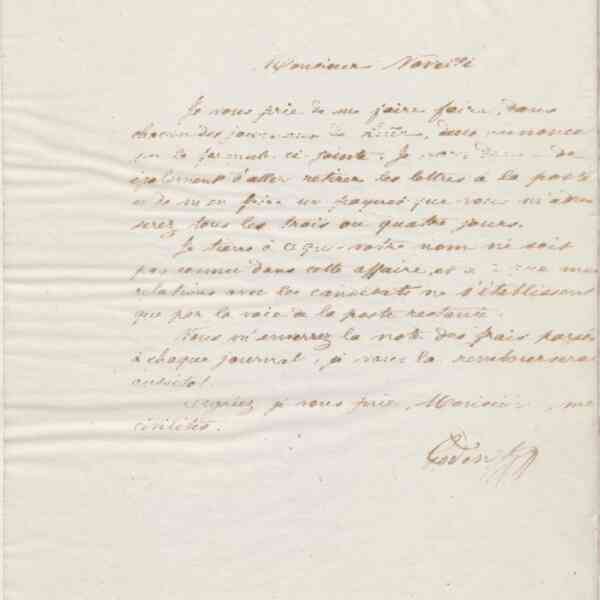 Monsieur
Je vous prie de me faire faire, dans
chacun des journaux de, deux annonces
la formule ci jointe. Je de
également d'aller retirer les lettres à la poste
et de m'en faire un paquet que vous m'adres
serez tous les trois ou quatre jours.
Je tiens à ce que votre nom ne soit
pas connu dans cette affaire, et à que mes
relations avec les candidats ne s'établissent
que par la voie de la poste restante.
Vous m'enverrez la note des frais payés
à chaque journal, je vous la rembourserai
aussitôt.
Agréez, je vous prie, Monsieur, mes
civilités.
Godin